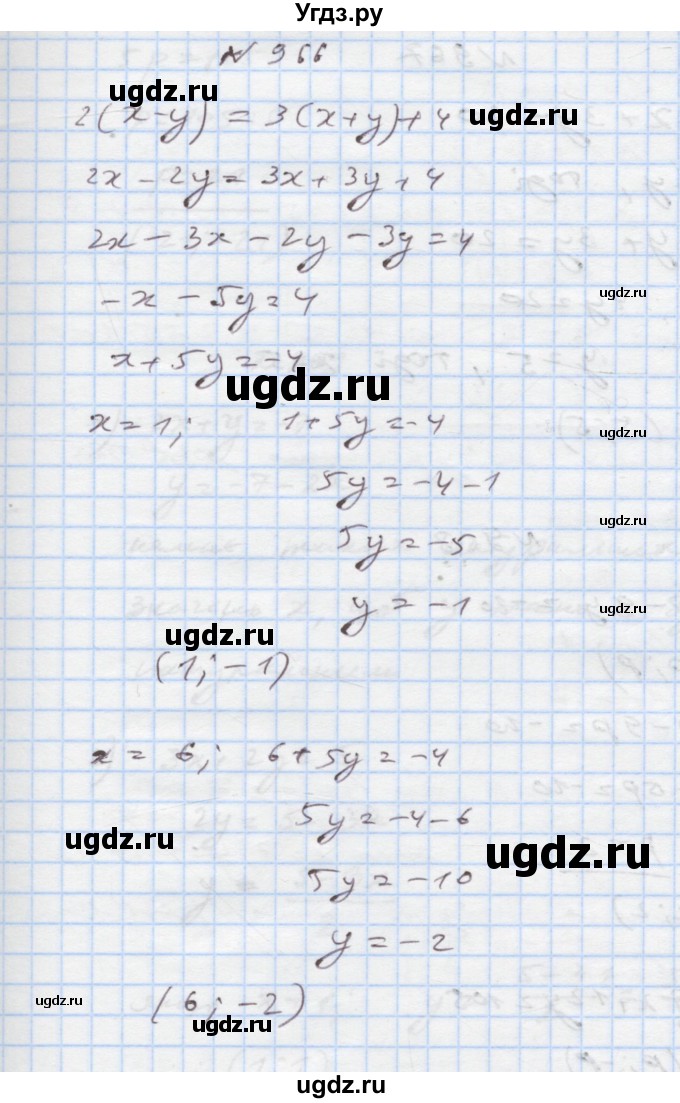 Угдз.ру
№ 966
ugdz.ru
2(x-y) = 3(x+y)+4 ugdz.ru
2x - 2y = 3x + 3y + 4
2x - 3x - 2y - 3y = 4
-x - 5y = 4 ugdz.ru
x + 5y = -4
ugdz.ru
x = 1; 1 + 5y = -4 ugdz.ru
5y = -4 - 1
ugdz.ru
5y = -5
y = -1 ugdz.ru
ugdz.ru
(1; -1)
x = 6; 6 + 5y = -4
5y = -4 - 6
ugdz.ru ugdz.ru
5y = -10
y = -2
ugdz.ru (6; -2)
ugdz.ru
ugdz.ru